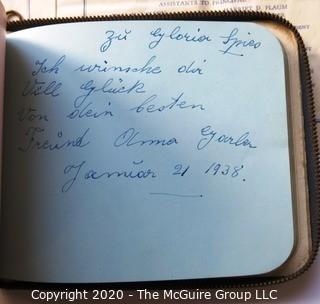 ASSISTANTS TO PRINCIPAL
D. PLAUM
Zŭ Gloria Spies
Ich wünsche dir
Vill Glück
Von dein besten
Freŭnd Anna
Janŭar 21 1938.
Copyright © 2020 - The McGuire Group LLC